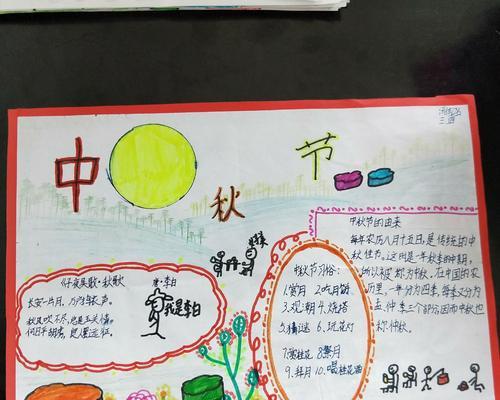 中
节
秋
三
中秋节的由来
每年农历八月十五日,是传统的中
秋佳节。这时是一年秋季的中期,
所以被称为中秋。在中国的农
历里,一年分为四季,每季又分为
孟、仲、季三个部分,因而中秋也
称仲秋。
子夜吴歌·秋歌
唐·李白
长安一片月,万户捣衣声。
秋风吹不尽,总是玉关情。
何日平胡虏,良人罢远征。
我是李白
中秋节习俗:
1.赏月 2.吃月饼
3.观潮 4.烧塔
5.猜谜 6.玩花灯
7.赏桂花 8.祭月
9.拜月 10.喝桂花酒